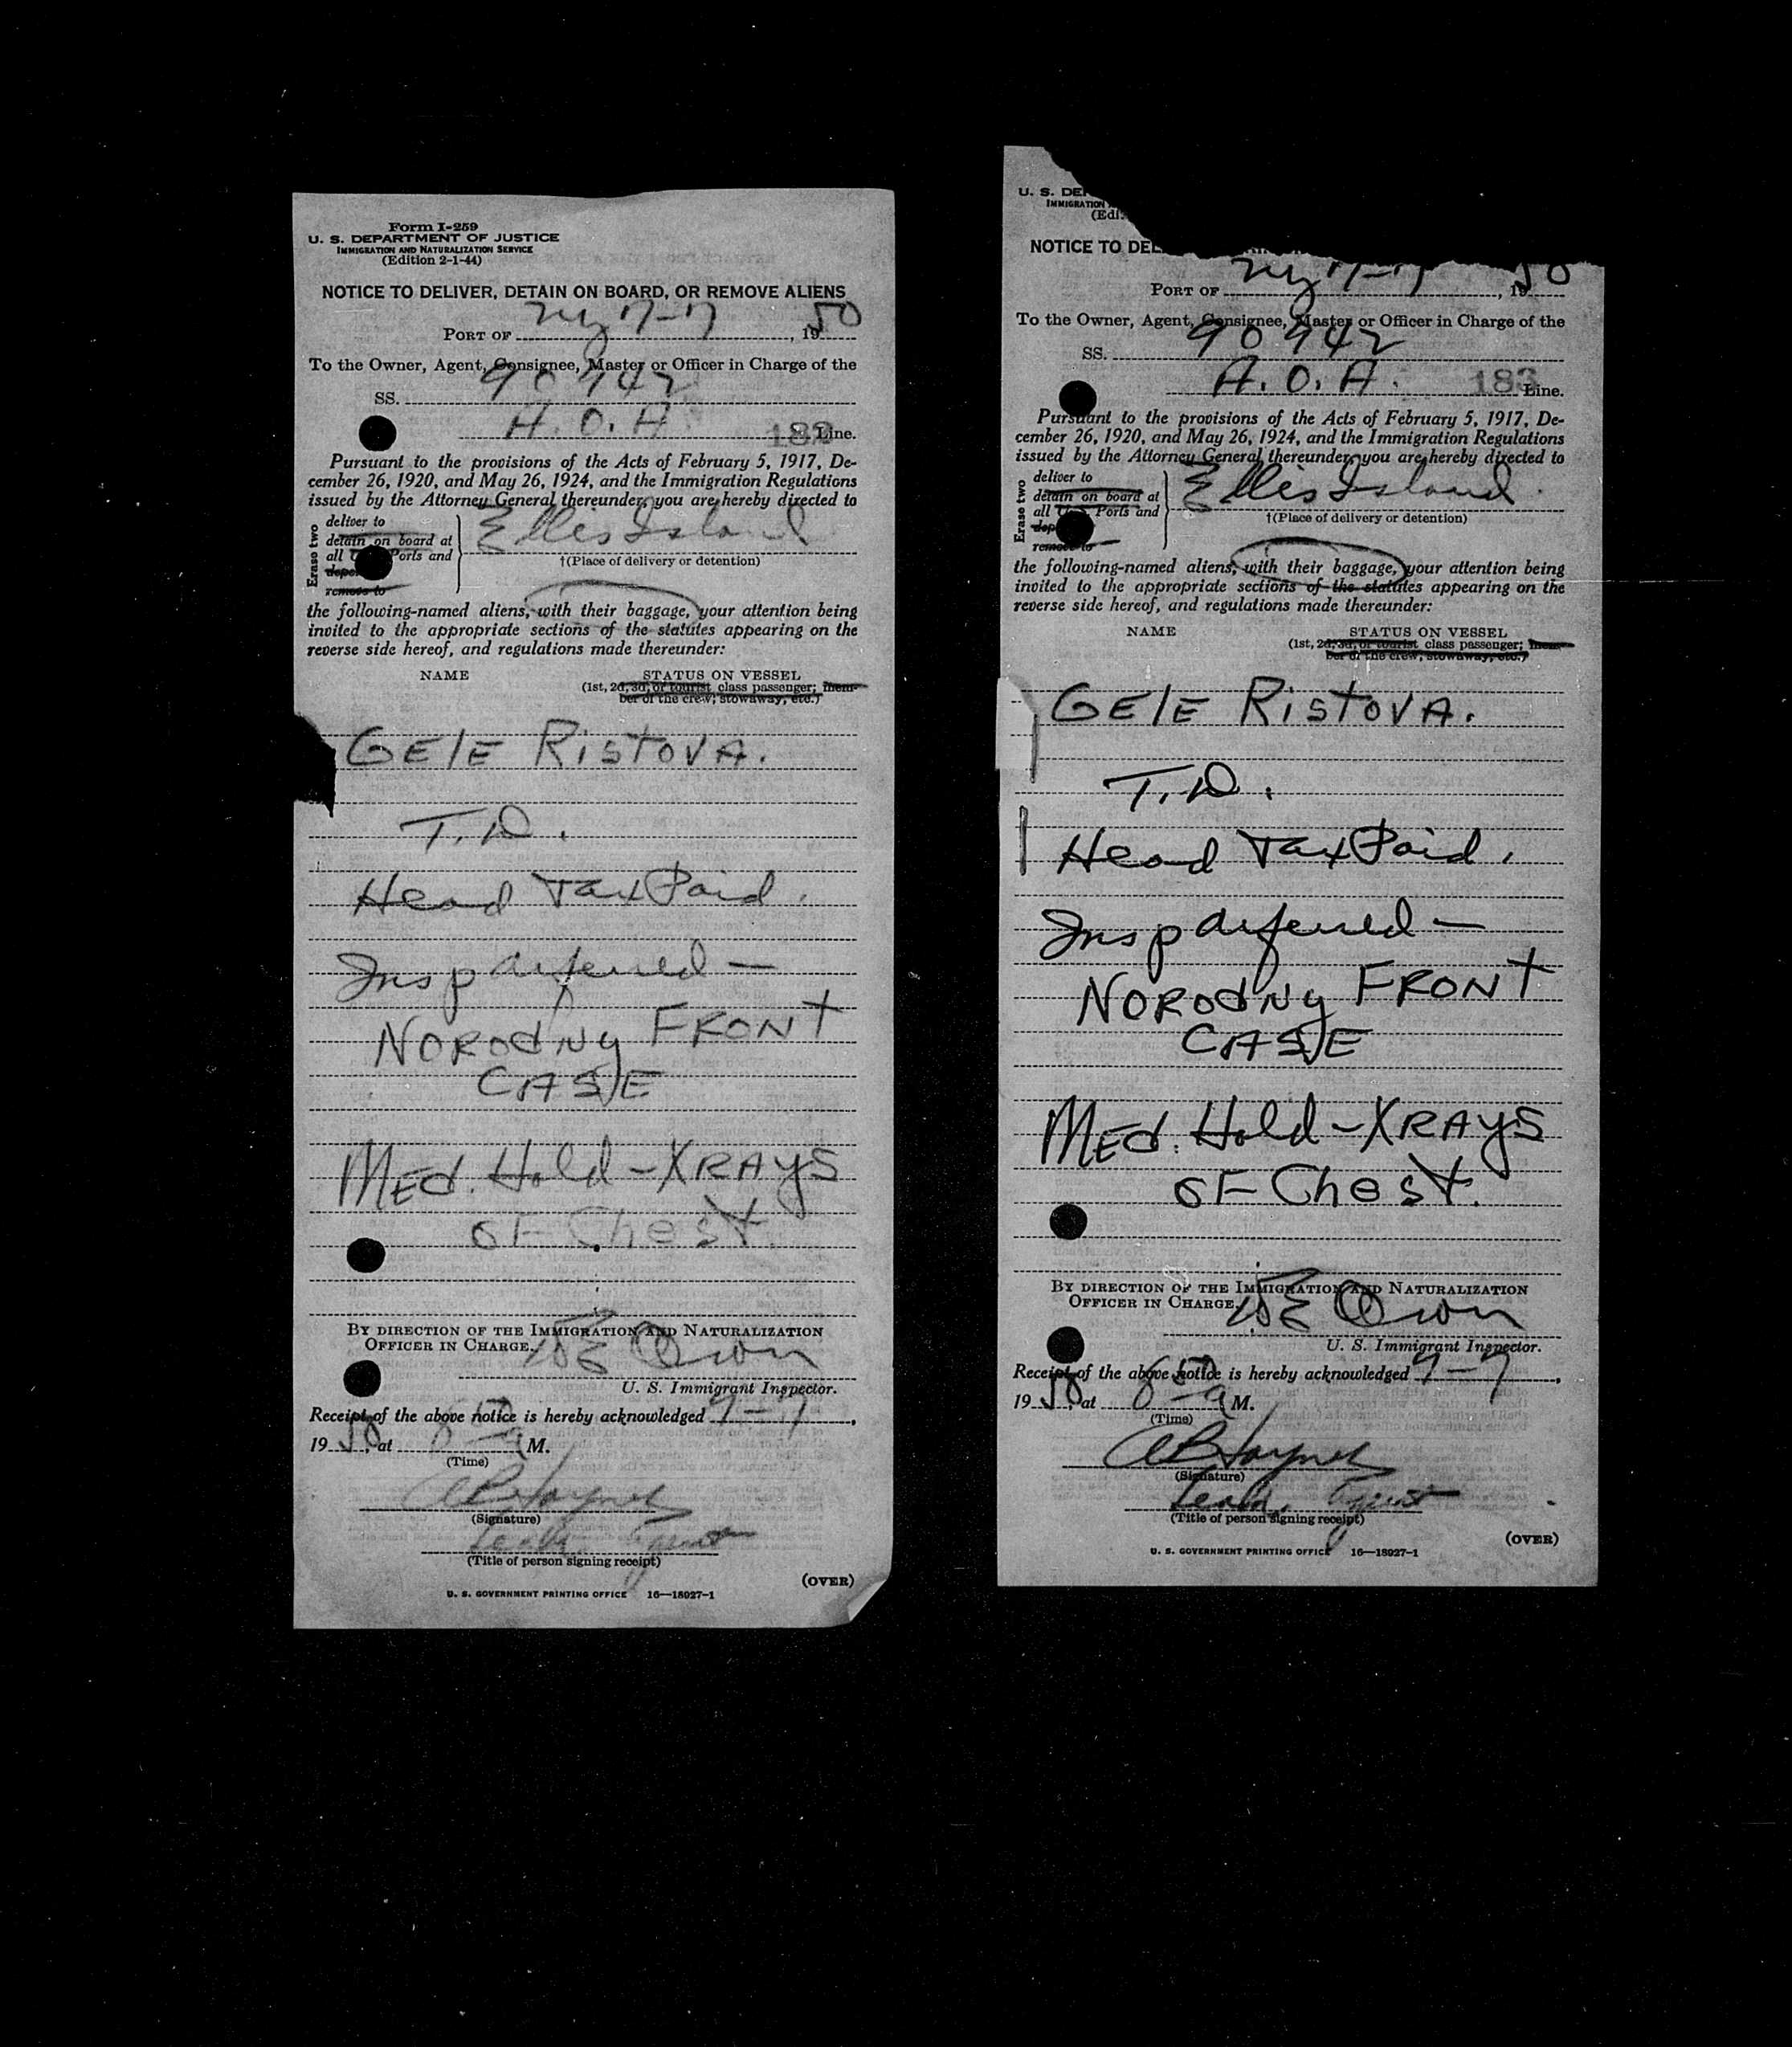 Form I-259
U. S. DEPARTMENT OF JUSTICE
IMMIGRATION AND NATURALIZATION SERVICE
(Edition 2-1-44)
NOTICE TO DELIVER, DETAIN ON BOARD, OR REMOVE ALIENS
PORT OF NY 7-7, 1950
To the Owner, Agent, Consignee, Master or Officer in Charge of the
SS. 90942
A.O.A 182 Line.
Pursuant to the provisions of the Acts of February 5, 1917, De-
cember 26, 1920, and May 26, 1924, and the Immigration Regulations
issued by the Attorney General thereunder, you are hereby directed to
Erase two
deliver to
detain on board at
all Ports and
remove to
Ellis Island
†(Place of delivery or detention)
the following-named aliens, with their baggage, your attention being
invited to the appropriate sections of the statutes appearing on the
reverse side hereof, and regulations made thereunder:
NAME STATUS ON VESSEL
(1st, 2d, 3d, or tourist class passenger; mem-
ber of the crew, stowaway, etc.)
GELE RISTOVA.
T.D.
Head Tax Paid.
Insp deferred —
NORODNY FRONT
CASE
MED. Hold - XRAYS
OF Chest.
BY DIRECTION OF THE IMMIGRATION AND NATURALIZATION
OFFICER IN CHARGE.
U. S. Immigrant Inspector.
Receipt of the above notice is hereby acknowledged 7-7,
1950, at M.
(Time)
(Signature)
(Title of person signing receipt)
(OVER)
U. S. GOVERNMENT PRINTING OFFICE 16—18027-1
U. S. DE
IMMIGRATION
(Edi
NOTICE TO DEL
PORT OF NY 7-7, 1950
To the Owner, Agent, Consignee, Master or Officer in Charge of the
SS. 90942
A.O.A. 183 Line.
Pursuant to the provisions of the Acts of February 5, 1917, De-
cember 26, 1920, and May 26, 1924, and the Immigration Regulations
issued by the Attorney General thereunder, you are hereby directed to
Erase two
deliver to
detain on board at
all Ports and
remove to
Ellis Island.
†(Place of delivery or detention)
the following-named aliens, with their baggage, your attention being
invited to the appropriate sections of the statutes appearing on the
reverse side hereof, and regulations made thereunder:
NAME STATUS ON VESSEL
(1st, 2d, 3d, or tourist class passenger; mem-
ber of the crew, stowaway, etc.)
GELE RISTOVA.
T.D.
Head Tax Paid.
Insp deferred —
NORODNY FRONT
CASE
MED. Hold - XRAYS
OF Chest.
BY DIRECTION OF THE IMMIGRATION AND NATURALIZATION
OFFICER IN CHARGE.
U. S. Immigrant Inspector.
Receipt of the above notice is hereby acknowledged 7-7,
1950, at M.
(Time)
(Signature)
(Title of person signing receipt)
(OVER)
U. S. GOVERNMENT PRINTING OFFICE 16—18027-1